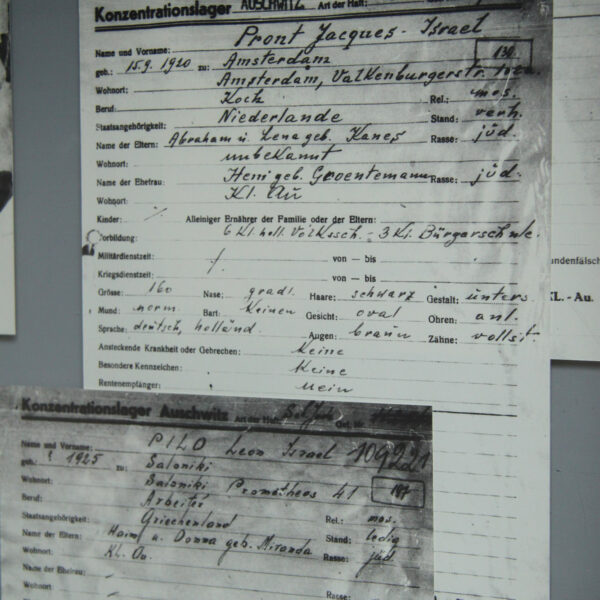 Konzentrationslager AUSCHWITZ Art der Haft:
Name und Vorname: Pront Jacques - Israel
geb.: 15.9.1920 zu: Amsterdam 130
Wohnort: Amsterdam, Valkenburgerstr.
Beruf: Koch Rel.: mos.
Staatsangehörigkeit: Niederlande Stand: verh.
Name der Eltern: Abraham u. Lena geb. Kanes Rasse: jüd.
Wohnort: unbekannt
Name der Ehefrau: Heni geb. Groentemann Rasse: jüd.
Wohnort: Kl. Au
Kinder: Alleiniger Ernährer der Familie oder der Eltern:
Vorbildung: 6 Kl. holl. Volkssch. - 3 Kl. Bürgerschule.
Militärdienstzeit: von — bis
Kriegsdienstzeit: von — bis
Grösse: 160 Nase: gradl. Haare: schwarz Gestalt: unters.
Mund: norm. Bart: keinen Gesicht: oval Ohren: anl.
Sprache: deutsch, holländ Augen: braun Zähne: vollst.
Ansteckende Krankheit oder Gebrechen: Keine
Besondere Kennzeichen: Keine
Rentenempfänger: nein
undenfälsch
KL.-Au.
Konzentrationslager Auschwitz Art der Haft: Gef. Nr.
Name und Vorname: PILO Leon Israel 109221
geb.: 1925 zu: Saloniki
Wohnort: Saloniki Prometheos 41 187
Beruf: Arbeiter Rel.: mos.
Staatsangehörigkeit: Griechenland Stand: ledig
Name der Eltern: Haim u. Donna geb. Miranda Rasse: jüd.
Wohnort: KL. Au.
Name der Ehefrau: Rasse:
Wohnort: